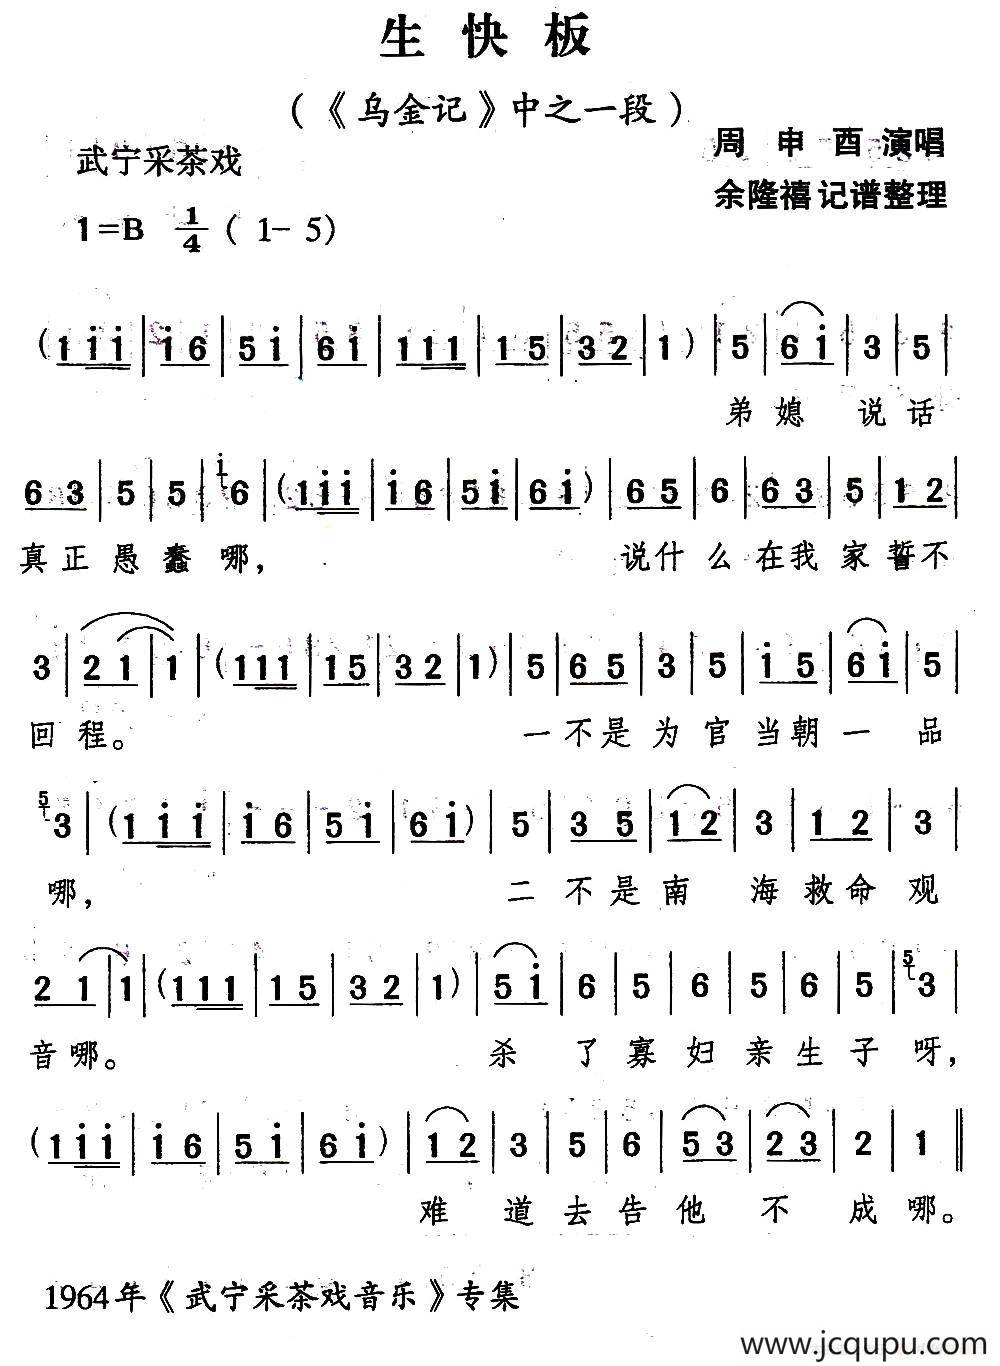 生快板
(《乌金记》中之一段)
武宁采茶戏
周申酉演唱
余隆禧记谱整理
1=B 1/4 (1-5)
(1 i i | i 6 | 5 i | 6 i | 1 1 1 | 1 5 | 3 2 | 1) | 5 | 6 i | 3 | 5 |
弟媳说话
6 3 | 5 | 5 | i 6 | (1 i i | i 6 | 5 i | 6 i) | 6 5 | 6 | 6 3 | 5 | 1 2 |
真正愚蠢哪,说什么在我家誓不
3 | 2 1 | 1 | (1 1 1 | 1 5 | 3 2 | 1) | 5 | 6 5 | 3 | 5 | i 5 | 6 i | 5 |
回程。一不是为官当朝一品
5 3 | (1 i i | i 6 | 5 i | 6 i) | 5 | 3 5 | 1 2 | 3 | 1 2 | 3 |
哪,二不是南海救命观
2 1 | 1 | (1 1 1 | 1 5 | 3 2 | 1) | 5 i | 6 | 5 | 6 | 5 | 6 | 5 | 5 3 |
音哪。杀了寡妇亲生子呀,
(1 i i | i 6 | 5 i | 6 i) | 1 2 | 3 | 5 | 6 | 5 3 | 2 3 | 2 | 1 ‖
难道去告他不成哪。
1964年《武宁采茶戏音乐》专集
www.jcqupu.com